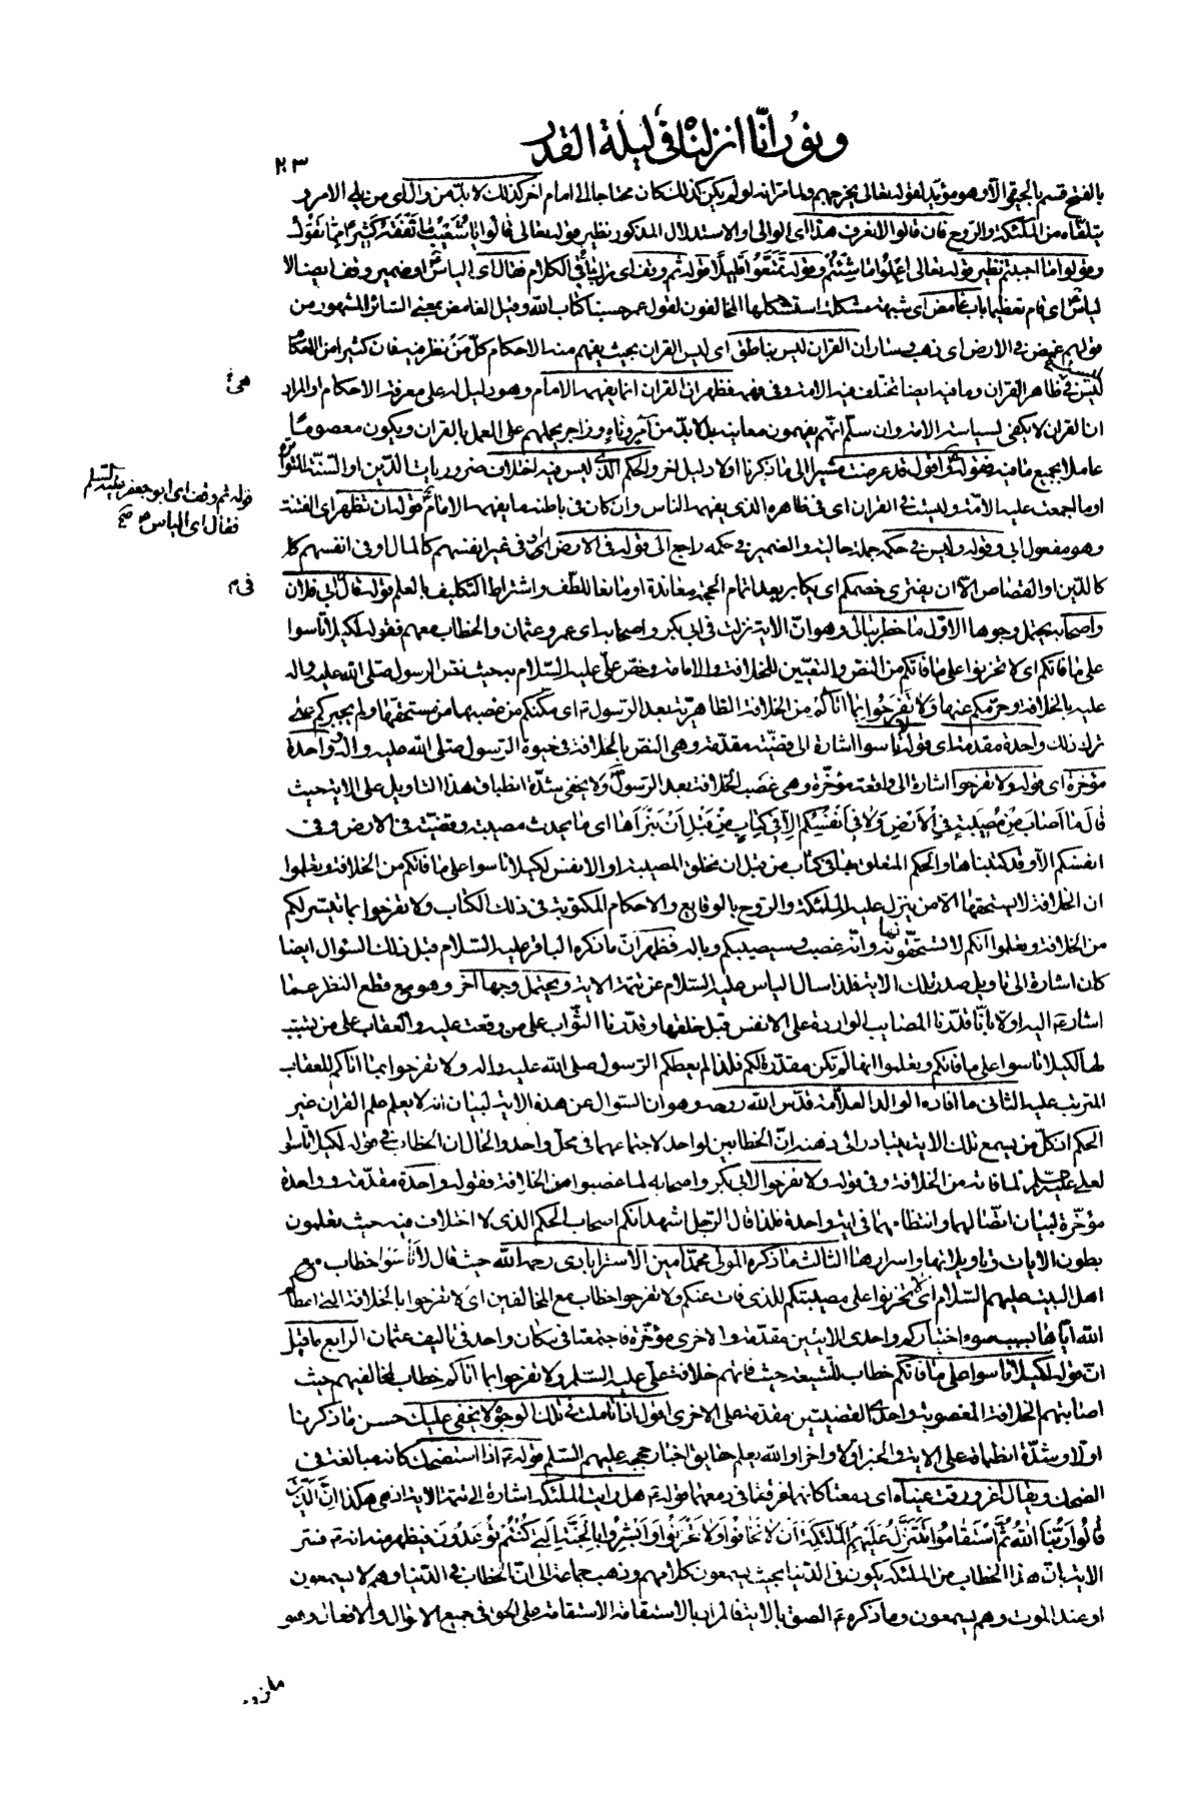 ونور انّا انزلناه في ليلة القدر
٢٠٣
بالفتح قسم بالجيم والآ وهو مؤيد لقوله تعالى يخرجهم ولما مرّ انه لو لم يكن كذلك لكان محتاجا الى امام اخر كذلك لا بدّ من وال اى من يلي الامر و
يتلقاه من الملئكة والروح فان قالوا لا نعرف هذا اى الوالى او الاستدلال المذكور نظير قوله تعالى قالوا يا شُعَيبُ ما نَفْقَهُ كَثيرًا مِمّا تَقُولُ
وقولوا ما احببتم نظير قوله تعالى اعْمَلُوا ما شِئْتُمْ وقوله تَمَتَّعُوا قَليلًا قوله ثم وقف اى ترك الكلام فقال اى الياس او ضمير وقف ايضا لا
لياس اى قام تعظيما باب غامض اى شبهة مشكلة استشكلها المخالفون لقول عمر حسبنا كتاب الله وقيل الغامض بمعنى السائر المشهور من
قولهم غمض في الارض اى ذهب وسار ان القران ليس بناطق اى ليس القران بحيث يفهم منه الاحكام كلّ من نظر فيه فان كثيرا من الاحكام
ليس في ظاهر القران وما فيه ايضا تختلف فيه الامة وفي فهمه فظهر ان القران انما يفهمه الامام وهو دليل له على معرفة الاحكام او المراد
ان القران لا يكفى لسياسة الامة وان سلّم انهم يفهمون معانيه بل لا بدّ من آمر وناه وزاجر يحملهم على العمل بالقران ويكون معصوما
عاملا بجميع ما فيه فقوله اقول قد عرضت مشيرا الى ما ذكرنا اولا دليل اخر والحكم الذى ليس فيه اختلاف ضروريات الدّين او السّنّة المتواترة
او ما اجمعت عليه الامّة وليست في القران اى في ظاهره الذى يفهمه الناس وان كان في باطنه ما يفهمه الامام قوله ان تظهر اى الفتنة
وهو مفعول ابى وقوله وليس في حكمه جملة حالية والضمير في حكمه راجع الى قوله في الارض اى في غير انفسهم كالمال او في انفسهم كا
كالدّين او القصاص الا ان يفترى خصمكم اى يكابر بعد اتمام الحجّة معاندة او مانعا للّطف واشتراط التكليف بالعلم قوله فقال ابى فلان
واصحابه يحتمل وجوها الاوّل ما خطر ببالى وهو انّ الآية نزلت في ابى بكر واصحابه اى عمر وعثمان والخطاب معهم فقوله لكيلا تأسوا
على ما فاتكم اى لا تحزنوا على ما فاتكم من النص والتعيين للخلافة والامامة وخصّ علىّ عليه السّلام به حيث نصّ الرسول صلى الله عليه واله
عليه بالخلافة وحرّمكم عنها ولا تَفرَحُوا بِما آتاكُم من الخلافة الظاهرية بعد الرّسول ص اى مكّنكم من غصبها من مستحقها ولم يجبركم على
ترك ذلك واحدة مقدمة اى قوله لا تأسوا اشارة الى قضيّة مقدمة وهي النص بالخلافة في حيوة الرّسول صلى الله عليه واله وواحدة
مؤخرة اى قوله ولا تفرحوا اشارة الى واقعة مؤخرة وهى غصب الخلافة بعد الرّسول ولا يخفى شدّة انطباق هذا التاويل على الاية حيث
قال ما اَصابَ مِنْ مُصيبَةٍ فِي الْاَرْضِ وَلا في اَنْفُسِكُمْ اِلّا في كِتابٍ مِنْ قَبْلِ اَنْ نَبْرَاَها اى ما يحدث مصيبة وقضيّة في الارض وفى
انفسكم الا وقد كتبناها والحكم المتعلق بها في كتاب من قبل ان نخلق المصيبة او الانفس لكيلا تأسوا على ما فاتكم من الخلافة وتعلموا
ان الخلافة لا يستحقها الا من ينزل عليه الملئكة والرّوح بالوقايع والاحكام المكتوبة في ذلك الكتاب ولا تفرحوا بما تيسّر لكم
من الخلافة وتعلموا انكم لا تستحقونها وانّه غصب وسيصيبكم وباله فظهر انّ ما ذكره الباقر عليه السّلام قبل ذلك السّوال ايضا
كان اشارة الى تاويل صدر تلك الاية فلذا سال الياس عليه السّلام عن تتمّة الاية ويحتمل وجها آخر وهو مع قطع النظر عما
اشار ع اليه اولا بانّا قدّرنا المصايب الواردة على الانفس قبل خلقها وقدّرنا الثّواب على من وقعت عليه والعقاب على من تسبّب
لها لكيلا تأسوا على ما فاتكم وتعلموا انها لم تكن مقدّرة لكم فلذا لم يعطكم الرّسول صلى الله عليه واله ولا تفرحوا بما اتاكم للعقاب
المترتب عليه الثانى ما افاده الوالد العلّامة قدّس الله روحه وهو ان السّوال عن هذه الاية لبيان انه لا يعلم علم القران غير
الحكم اذ كلّ من يسمع تلك الاية يتبادر الى ذهنه انّ الخطابين لواحد لاجتماعهما في محلّ واحد والحال ان الخطاب في قوله لكيلا تأسوا
لعلى عليه السّلم لما فاته من الخلافة وفي قوله ولا تفرحوا لابى بكر واصحابه لما غصبوا من الخلافة فقوله واحدة مقدّمة وواحدة
مؤخّرة لبيان اتّصالهما وانتظامهما في اية واحدة فلذا قال الرّجل اشهد انكم اصحاب الحكم الذى لا اختلاف فيه حيث تعلمون
بطون الايات وتاويلاتها واسرارها الثالث ما ذكره المولى محمّد امين الاسترابادى رحمه الله حيث قال لا تَأْسَوا خطاب مع
اهل البيت عليهم السّلام اى لا تحزنوا على مصيبتكم للذى فات عنكم ولا تفرحوا خطاب مع المخالفين اى لا تفرحوا بالخلافة التى اعطاكم
الله ايّاها بسبب سوء اختياركم واحدى الايتين مقدّمة والاخرى مؤخّرة فاجتمعتا في مكان واحد في تاليف عثمان الرابع ما قيل
انّ قوله لكيلا تأسوا على ما فاتكم خطاب للشيعة حيث فاتهم خلافة علىّ عليه السّلم ولا تفرحوا بما اتاكم خطاب لمخالفيهم حيث
اصابتهم الخلافة المغصوبة واحدى القضيّتين مقدّمة على الاخرى اقول اذا تأملت في تلك الوجوه لا يخفى عليك حسن ما ذكرنا
اولا وشدّة انطباقه على الاية والخبر اولا واخرا والله يعلم حقايق اخبار حججه عليهم السّلم قوله ع اذا استضحك كانه مبالغة في
الضحك ويقال اغرورقت عيناه اى دمعتا كانهما غرقتا في دمعهما قوله ع هل رايت الملئكة اشارة الى تتمة الاية اذ هى هكذا اِنَّ الَّذينَ
قالُوا رَبُّنَا اللّٰهُ ثُمَّ اسْتَقامُوا تَتَنَزَّلُ عَلَيْهِمُ الْمَلٰئِكَةُ اَنْ لا تَخافُوا وَلا تَحْزَنُوا وَاَبْشِرُوا بِالْجَنَّةِ الَّتي كُنْتُمْ تُوعَدُونَ فيظهر منه انه ع فسّر
الاية بان هذا الخطاب من الملئكة يكون في الدّنيا بحيث يسمعون كلامهم وذهب جماعة الى انّ الخطاب في الدّنيا وهم لا يسمعون
او عند الموت وهم يسمعون وما ذكره ع الصق بالاية فالمراد بالاستقامة الاستقامة على الحق في جميع الاقوال والافعال وهو
قوله ثم وقف اى ابو جعفر عليه السّلم
فقال اى الياس ص صح